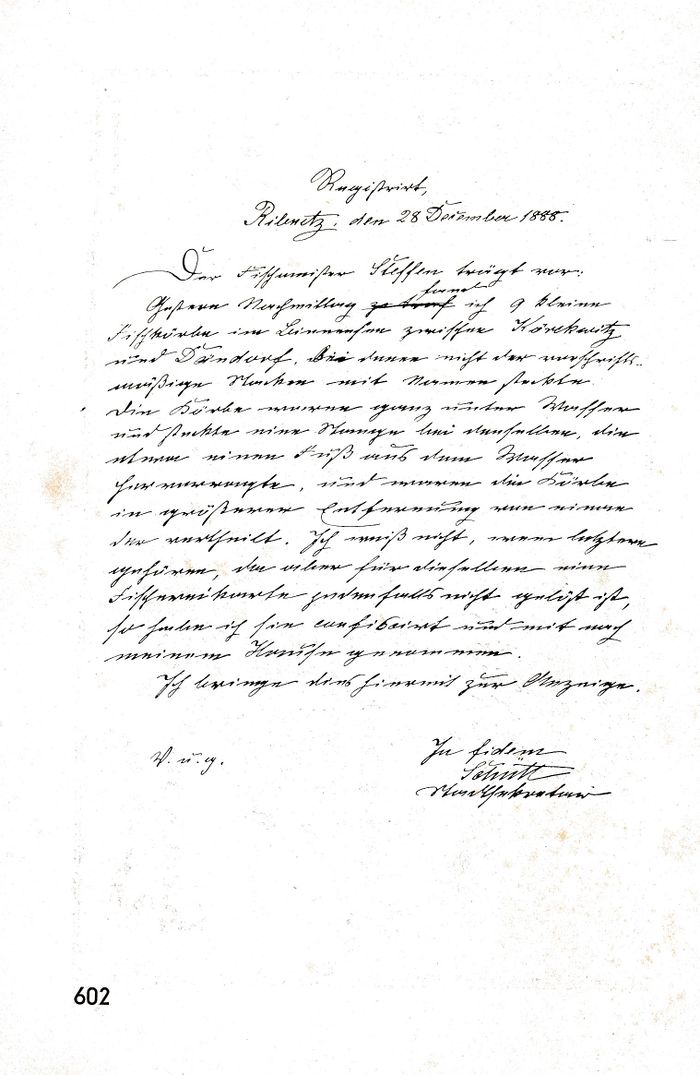 Registrirt,
Ribnitz, den 28 December 1888.
Der Fischmeister Steffen trägt vor:
Gestern Nachmittag fand ich 9 kleine
Fischkörbe im Binnensee zwischen Körckwitz
und Dändorf, bei denen nicht der vorschrifts-
mäßige Stacken mit Namen steckte.
Die Körbe waren ganz unter Wasser
und steckte eine Stange bei denselben, die
etwa einen Fuß aus dem Wasser
hervorragte, und waren die Körbe
in größerer Entfernung von einan
der vertheilt. Ich weiß nicht, wem letztere
gehören, da aber für dieselben eine
Fischereikarte jedenfalls nicht gelößt ist,
so habe ich sie confiscirt und mit nach
meinem Hause genommen.
Ich bringe dies hiermit zur Anzeige.
V. u. g.
In fidem
Schütt
Stadtsekretair
602